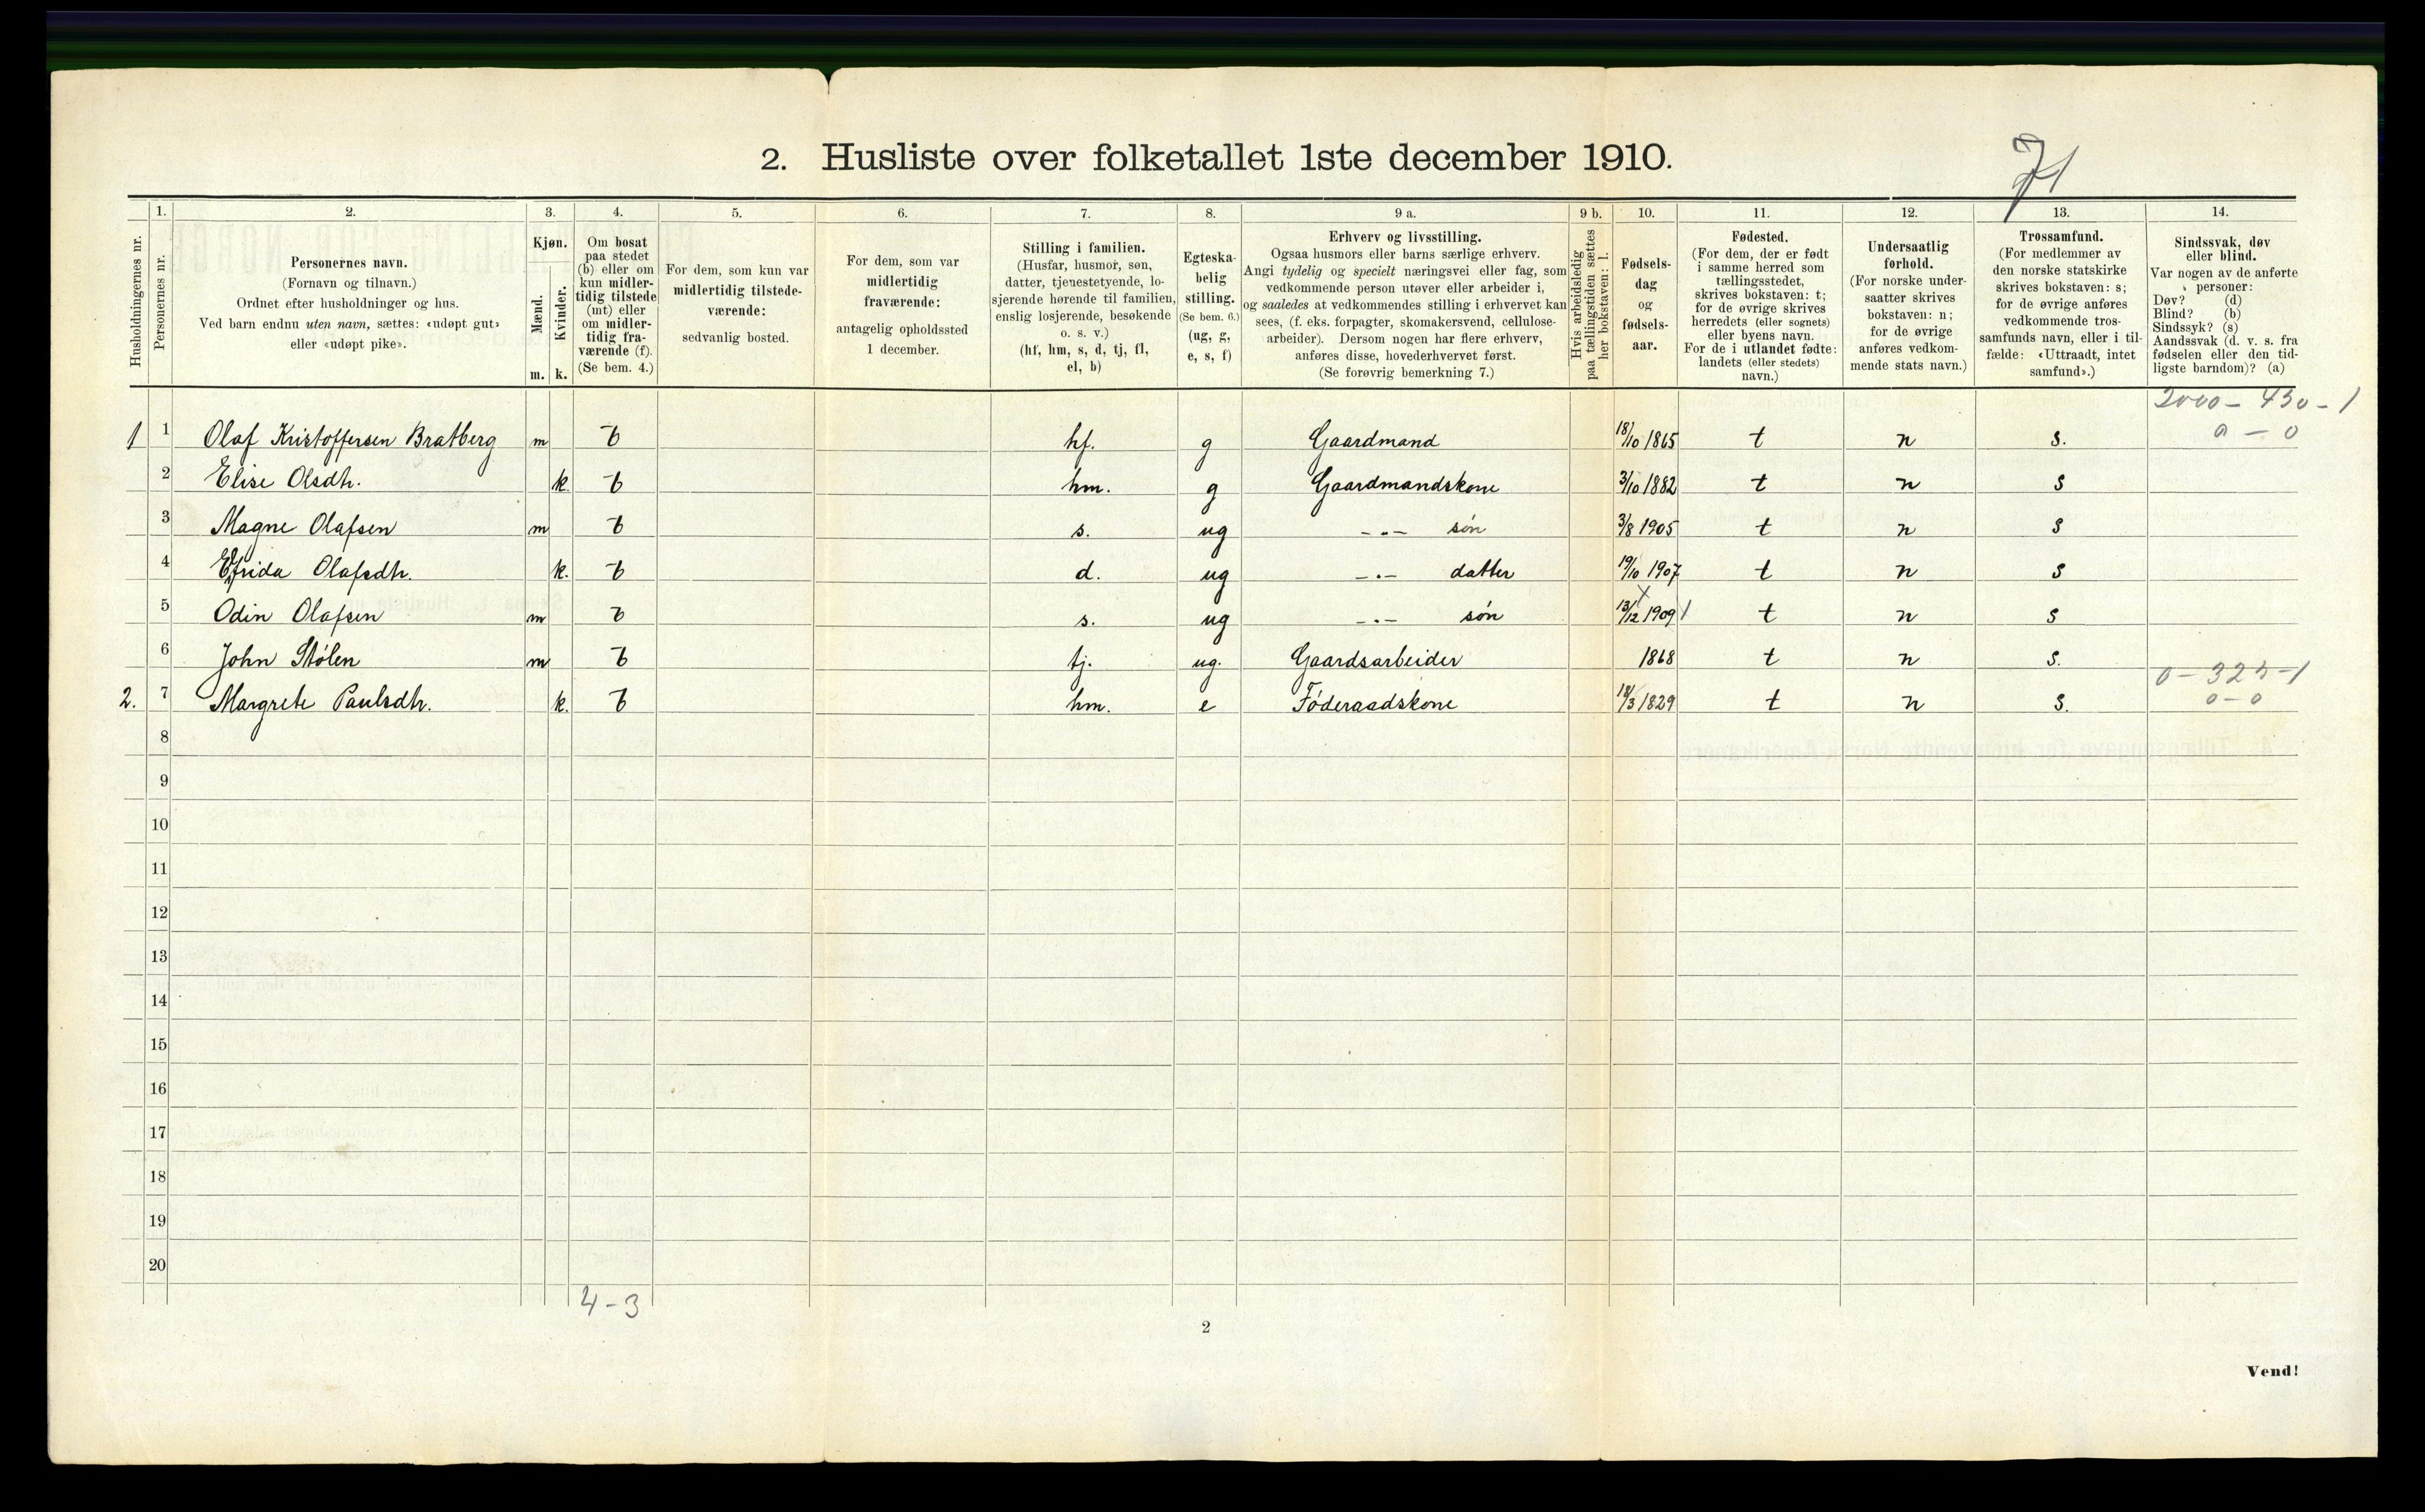 2. Husliste over folketallet 1ste december 1910.
71
1. 2. 3. 4. 5. 6. 7. 8. 9 a. 9 b. 10. 11. 12. 13. 14.
Husholdningernes nr.
Personernes nr.
Personernes navn.
(Fornavn og tilnavn.)
Ordnet efter husholdninger og hus.
Ved barn endnu uten navn, sættes: «udøpt gut»
eller «udøpt pike».
Kjøn.
Mænd.
Kvinder.
m. k.
Om bosat
paa stedet
(b) eller om
kun midler-
tidig tilstede
(mt) eller
om midler-
tidig fra-
værende (f).
(Se bem. 4.)
For dem, som kun var
midlertidig tilstede-
værende:
sedvanlig bosted.
For dem, som var
midlertidig
fraværende:
antagelig opholdssted
1 december.
Stilling i familien.
(Husfar, husmor, søn,
datter, tjenestetyende, lo-
sjerende hørende til familien,
enslig losjerende, besøkende
o. s. v.)
(hf, hm, s, d, tj, fl,
el, b)
Egteska-
belig
stilling.
(Se bem. 6.)
(ug, g,
e, s, f)
Erhverv og livsstilling.
Ogsaa husmors eller barns særlige erhverv.
Angi tydelig og specielt næringsvei eller fag, som
vedkommende person utøver eller arbeider i,
og saaledes at vedkommendes stilling i erhvervet kan
sees, (f. eks. forpagter, skomakersvend, cellulose-
arbeider). Dersom nogen har flere erhverv,
anføres disse, hovederhvervet først.
(Se forøvrig bemerkning 7.)
Hvis arbeidsledig
paa tællingstiden sættes
her bokstaven: l.
Fødsels-
dag
og
fødsels-
aar.
Fødested.
(For dem, der er født
i samme herred som
tællingsstedet,
skrives bokstaven: t;
for de øvrige skrives
herredets (eller sognets)
eller byens navn.
For de i utlandet fødte:
landets (eller stedets)
navn.)
Undersaatlig
forhold.
(For norske under-
saatter skrives
bokstaven: n;
for de øvrige
anføres vedkom-
mende stats navn.)
Trossamfund.
(For medlemmer av
den norske statskirke
skrives bokstaven: s;
for de øvrige anføres
vedkommende tros-
samfunds navn, eller i til-
fælde: «Uttraadt, intet
samfund».)
Sindssvak, døv
eller blind.
Var nogen av de anførte
personer:
Døv? (d)
Blind? (b)
Sindssyk? (s)
Aandssvak (d. v. s. fra
fødselen eller den tid-
ligste barndom)? (a)
2000 - 430 - 1
1 1 Olaf Kristoffersen Bratberg m b hf. g Gaardmand 18/10 1865 t n s. 0 - 0
2 Elise Olsdh. k. b hm. g Gaardmandskone 3/10 1882 t n s
3 Magne Olafsen m b s. ug -"- søn 3/8 1905 t n s
4 Efrida Olafsdh. k. b d. ug -"- datter 19/10 1907 t n s
5 Odin Olafsen m b s. ug -"- søn 13/12 1909 t n s
6 John Stølen m b tj. ug. Gaardsarbeider 1868 t n s.
0 - 325 - 1
2. 7 Margrete Paulsdh. k. b hm. e Føderaadskone 18/3 1829 t n s. 0 - 0
8
9
10
11
12
13
14
15
16
17
18
19
20
4 - 3
2
Vend!